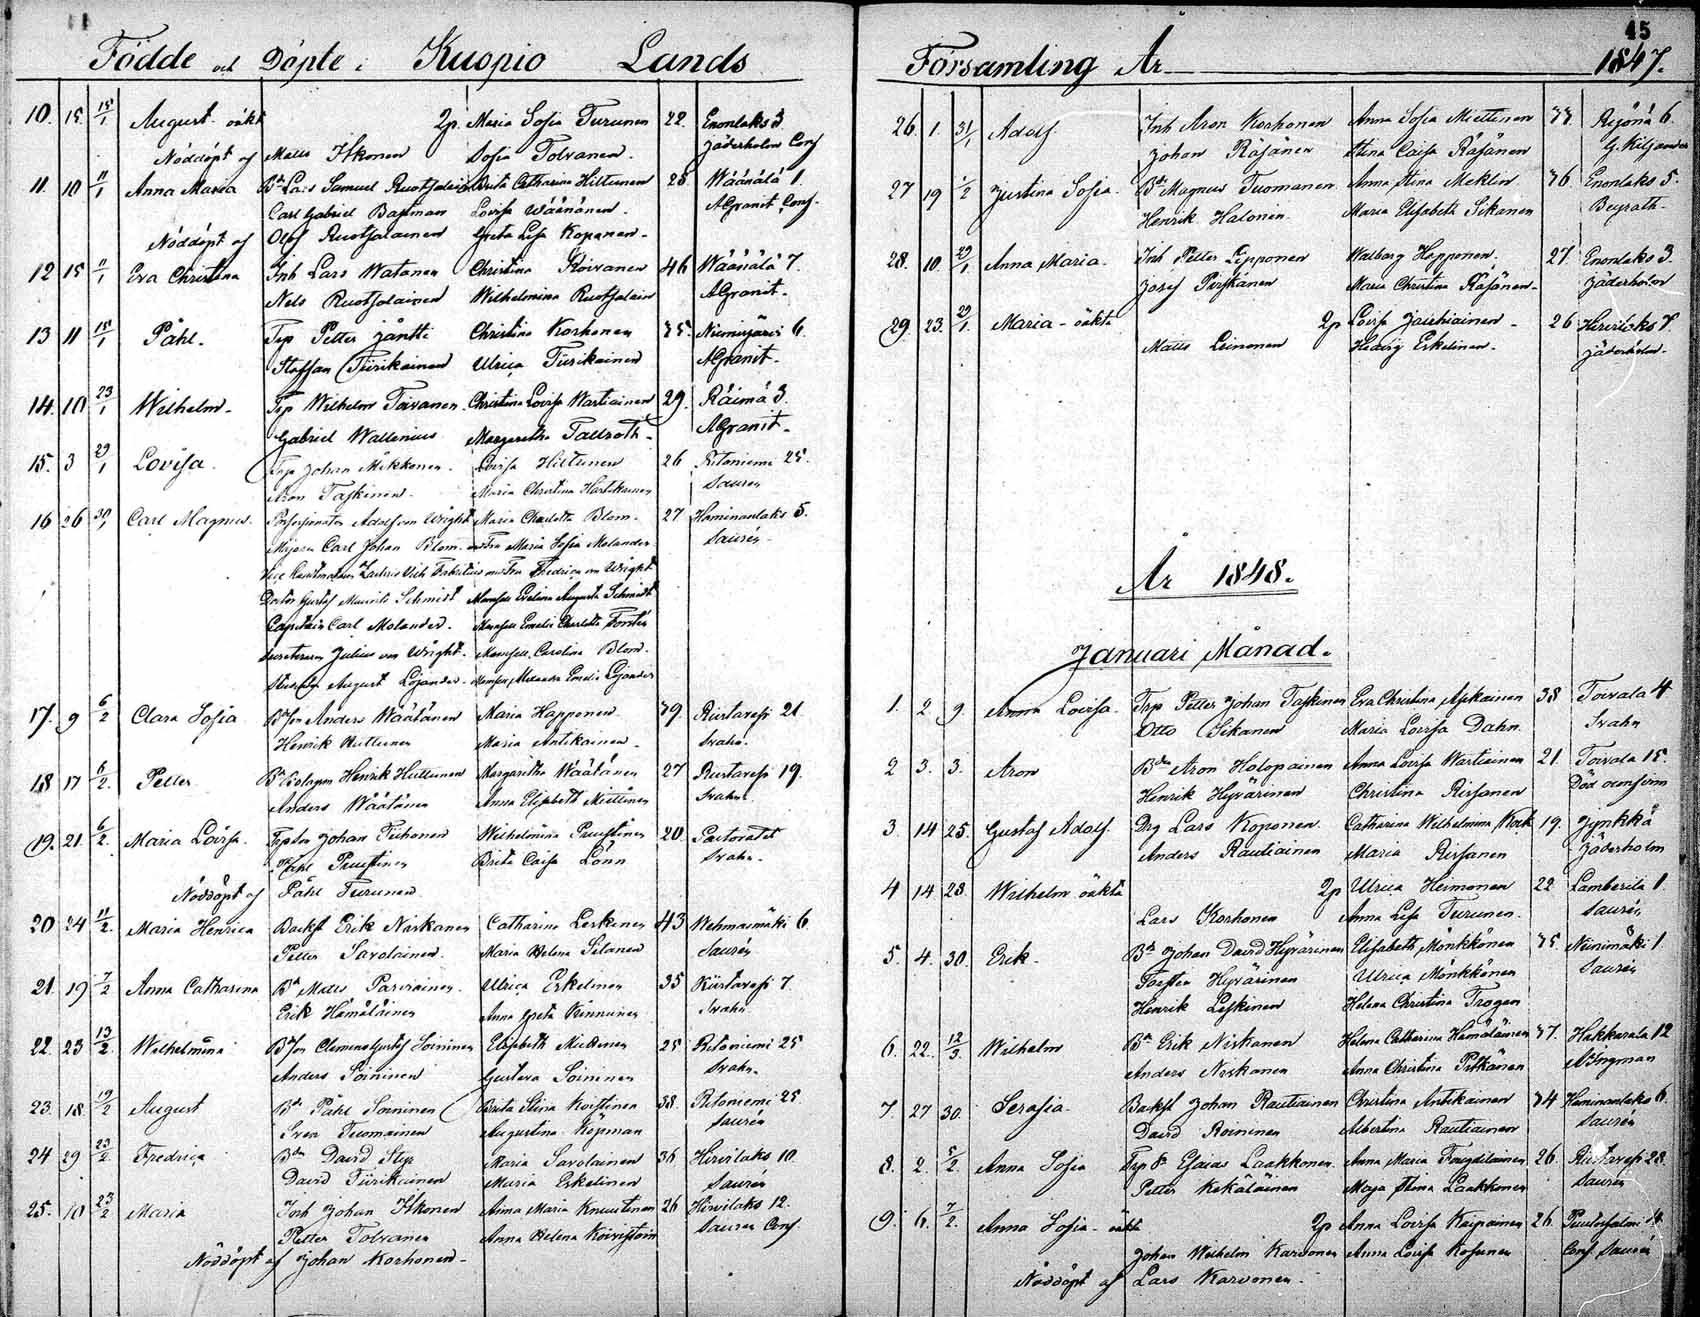 45
Födde och Döpte i Kuopio Lands Församling År 1847.
10. 15. 15/1 August oäkt 2p. Maria Sofia Turunen 22. Enonlaks 3
Nöddöpt af Matts Itkonen Sofia Tolvanen. Jäderholm Conf
11. 10 11/1 Anna Maria Lars Samuel Ruotsalain Brita Catharina Hiltunen 28 Wäänälä 1.
Carl Gabriel Bastman Lovisa Wäänänen. AGranit Conf.
Nöddöpt af Olof Ruotsalainen Greta Lisa Koponen
12 15 11/1 Eva Christina Inh Lars Watanen Christina Koivanen 46 Wäänälä 7.
Nils Ruotsalainen Wilhelmina Ruotsalain AGranit.
13 11 15/1 Påhl. Trp Petter Jäntti Christina Korhonen 35. Niemisjärvi 6.
Staffan Tiirikainen Ulrica Tiirikainen AGranit.
14. 10 23/1 Wilhelm. Trp Wilhelm Toivanen. Christina Lovisa Wartiainen 29. Räimä 3.
Gabriel Wallenius Margaretha Tallroth. AGranit.
15. 3 29/1 Lovisa. Trp Johan Mikkonen. Lovisa Hiltunen 26 Ritoniemi 25.
Aron Taskinen. Maria Christina Hartikainen Saurén
16 26 30/1 Carl Magnus. Adolf von Wright Maria Charlotta Blom. 27 Haminanlaks 5.
Carl Johan Blom. Fru Maria Sofia Molander Saurén.
Fabritius Fru Fredrica von Wright
Doctor Gustaf Mauritz Schmidt Mamsell Evelina Augusta Schmidt
Capitain Carl Molander. Mamsell Emelie Charlotta Forstén
Julius von Wright. Mamsell Carolina Blom.
August Löjander. Mamsell Alexandra Emelie Löjander
17. 9 6/2 Clara Sofia Anders Wäätänen Maria Happonen. 39. Riistavesi 21.
Henrik Huttunen Maria Antikainen. Svahn.
18 17 6/2. Petter. Henrik Huttunen Margaretha Wäätänen 27 Riistavesi 19.
Anders Wäätänen Anna Elisabeth Miettinen Svahn.
19. 21. 6/2. Maria Lovisa. Johan Tiihonen Wilhelmina Puustinen 20. Pastoratet
Påhl Puustinen Brita Caisa Lönn Svahn.
Nöddöpt af Påhl Turunen
20 24 11/2. Maria Henrica Backst Erik Niskanen Catharina Leskinen 43 Wehmasmäki 6.
Petter Savolainen. Maria Helena Silanen Saurén
21. 19 7/2 Anna Catharina Matts Parviainen. Ulrica Eskelinen 35 Riistavesi 7.
Erik Hämäläinen Anna Greta Kinnunen Svahn
22. 23 13/2. Wilhelmina Clemens Gustaf Soininen Elisabeth Miettinen 25 Ritoniemi 25
Anders Soininen Gustava Soininen Svahn.
23. 18. 19/2 August Påhl Soininen Brita Stina Koistinen 38. Ritoniemi 25
Sven Tuomainen Augustina Kopman Saurén
24 29 23/2 Fredrica David Maria Savolainen 36 Hirvilaks 10.
David Tiirikainen Maria Eskelinen Saurén
25. 10 23/2 Maria Inh Johan Itkonen Anna Maria Knuutinen 26 Hirvilaks 12.
Petter Tolvanen Anna Helena Koivistoin Saurén Conf.
Nöddöpt af Johan Korhonen
26. 1. 31/1 Adolf. Inh Aron Korhonen Anna Sofia Miettinen 33. 6.
Johan Räsänen Stina Caisa Räsänen G. Kiljander
27 19 1/2 Justina Sofia. Magnus Tuomanen Anna Stina Meklin 36 Enonlaks 5.
Henrik Halonen. Maria Elisabeth Sikanen Beyrath.
28. 10. 29/1 Anna Maria. Inh Petter Lipponen Walborg Happonen. 27. Enonlaks 3.
Josef Pirskanen Maria Christina Räsänen. Jäderholm
29. 23. 29/1. Maria oäkta 2p Lovisa Jauhiainen 26 Hirvilaks 7.
Matts Leinonen Hedvig Eskelinen. Jäderholm.
År 1848.
Januari Månad.
1. 2. 9 Anna Lovisa. Trp Petter Johan Taskinen Eva Christina Asikainen 38 Toivala 4
Otto Sikanen Maria Lovisa Dahn. Svahn
2 3. 3. Aron Aron Holopainen Anna Lovisa Wartiainen 21. Toivala 15.
Henrik Hyvärinen Christina Rissanen Död
3. 14 25. Gustaf Adolf. Drg Lars Koponen. Catharina Wilhelmina 19. Jynkkä
Anders Rautiainen Maria Rissanen Jäderholm
4 14 23. Wilhelm oäkta 2p Ulrica Heimonen 22 Lamberila 1.
Lars Korhonen Anna Lisa Turunen. Saurén
5. 4. 30. Erik. Johan David Hyvärinen Elisabeth Mönkkönen 35. Neinimäki 1
Hyvärinen Ulrica Mönkkönen Saurén
Henrik Leskinen Helena Christina Trogen
6. 22. 12/3. Wilhelm Erik Niskanen Helena Catharina Hämäläinen 37. Hakkarala 12
Anders Niskanen Anna Christina Pitkänen Ingman
7. 27 30. Serafia. Backst Johan Rautiainen Christina Antikainen 34 Haminanlaks 6.
David Roininen Albertina Rautiainen Saurén
8. 2. 5/2. Anna Sofia Esaias Laakkonen. Anna Maria 26. Riistavesi 28
Petter Kekäläinen Maja Stina Laakkonen Saurén
9. 6. 7/2. Anna Sofia oäkta 2p Anna Lovisa Kaipainen 26. Puutosalmi
Johan Wilhelm Karvonen Anna Lovisa Kosunen Conf. Saurén
Nöddöpt af Lars Karvonen.